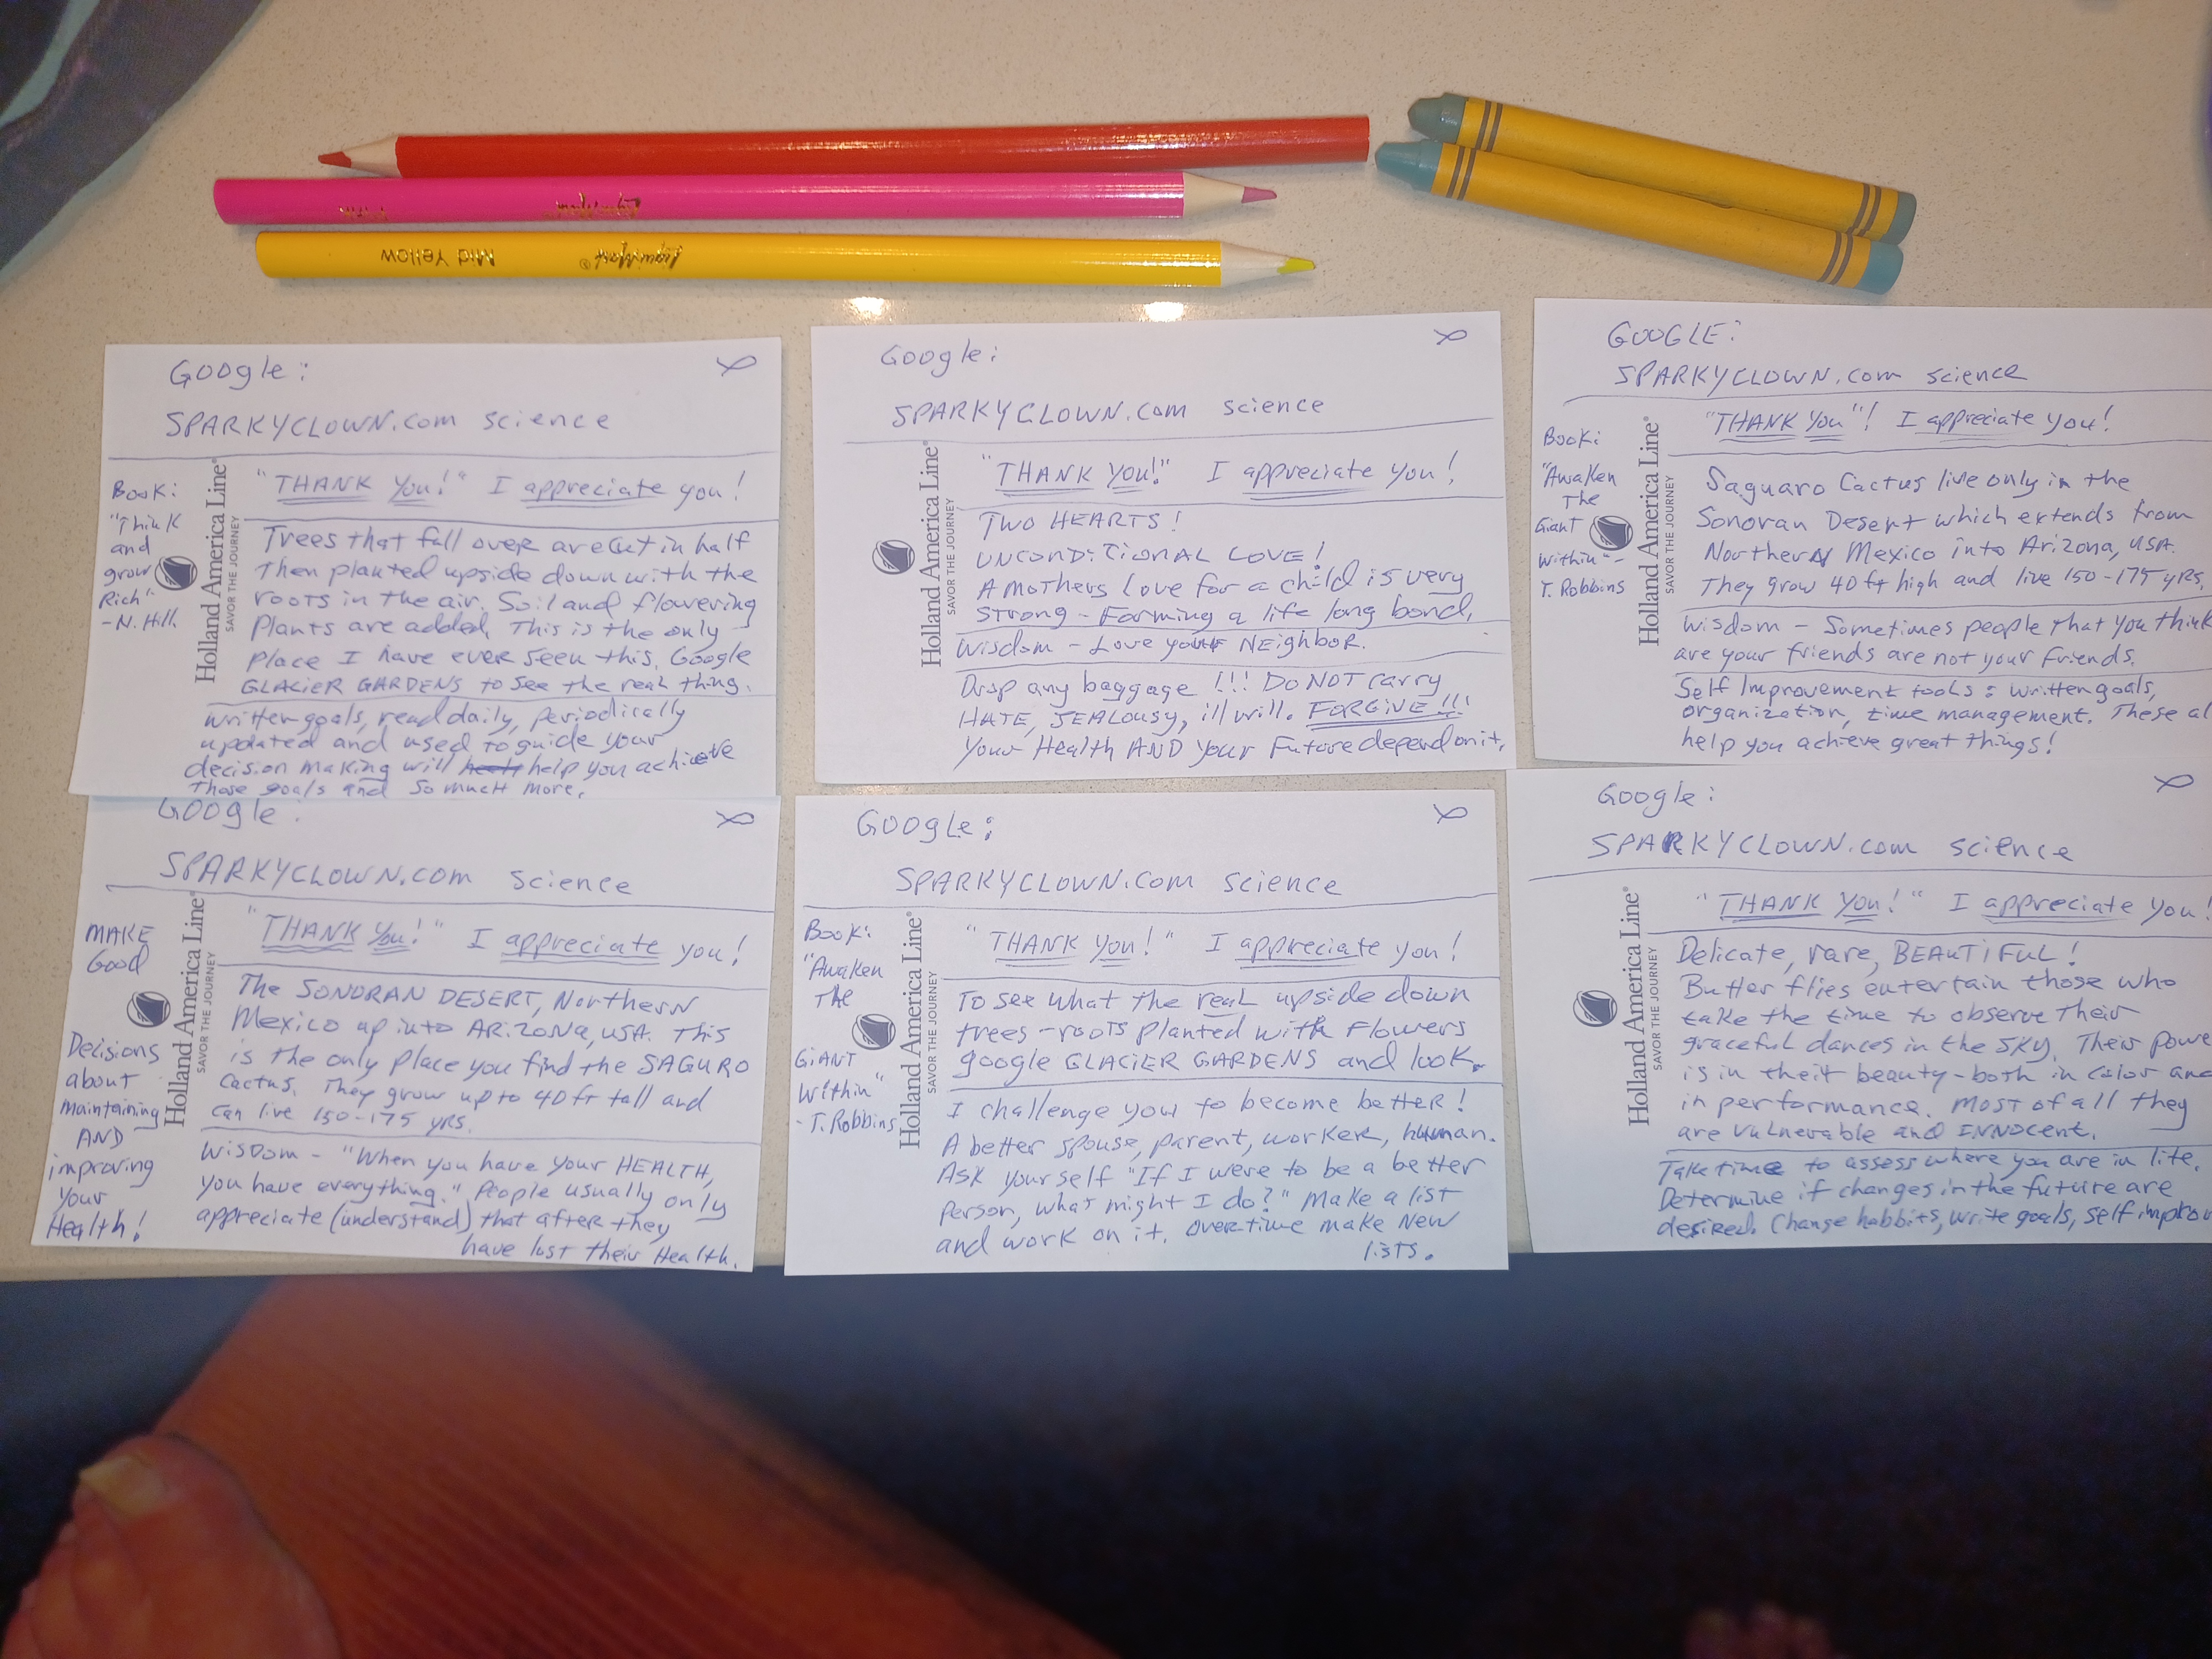 Mid Yellow
Google:
SPARKYCLOWN.com science
"THANK You!" I appreciate you!
Book:
"Think
and
grow
Rich"
-N. Hill
Holland America Line®
SAVOR THE JOURNEY
Trees that fall over are cut in half
Then planted upside down with the
roots in the air. Soil and flowering
Plants are added. This is the only
Place I have ever seen this. Google
GLACiER GARDENS to see the real thing.
written goals, read daily, periodically
updated and used to guide your
decision making will help you achieve
Those goals and so much more.
Google:
SPARKYCLOWN.com science
"THANK You!" I appreciate you!
Holland America Line®
SAVOR THE JOURNEY
TWO HEARTS!
UNCONDiTIONAL LOVE!
A Mothers Love for a child is very
strong - Forming a life long bond.
Wisdom - Love your NEighbor.
Drop any baggage !!! DO NOT carry
HATE, JEALOUSY, ill will. FORGiVE!!!
Your Health AND your Future depend on it.
GOOGLE:
SPARKYCLOWN.com science
"THANK You"! I appreciate you!
Book:
"Awaken
The
Giant
Within" -
T. Robbins
Holland America Line®
SAVOR THE JOURNEY
Saguaro Cactus live only in the
Sonoran Desert which extends from
Northern Mexico into Arizona, USA.
They grow 40 ft high and live 150-175 yrs.
Wisdom - Sometimes people that you think
are your friends are not your friends.
Self Improvement tools: written goals,
organization, time management. These al
help you achieve great things!
Google:
SPARKYCLOWN.com science
"THANK You!" I appreciate you!
MAKE
Good
Decisions
about
maintaining
AND
improving
your
Health!
Holland America Line®
SAVOR THE JOURNEY
The SONORAN DESERT, Northern
Mexico up into ARiZONA, USA. This
is the only Place you find the SAGURO
Cactus. They grow up to 40 ft tall and
can live 150-175 yrs.
WisDom - "When you have your HEALTH,
you have everything." People usually only
appreciate (understand) that after they
have lost their Health.
Google:
SPARKYCLOWN.com science
"THANK You!" I appreciate you!
Book:
"Awaken
The
GiANT
Within"
- T. Robbins
Holland America Line®
SAVOR THE JOURNEY
To see what the real upside down
trees - roots planted with Flowers
google GLACiER GARDENS and look.
I challenge you to become better!
A better spouse, parent, worker, human.
Ask yourself "If I were to be a better
Person, what might I do?" Make a list
and work on it. Over time make New
lists.
Google:
SPARKYCLOWN.com science
"THANK You!" I appreciate you!
Holland America Line®
SAVOR THE JOURNEY
Delicate, rare, BEAUTiFUL!
Butterflies entertain those who
take the time to observe their
graceful dances in the SKY. Their powe
is in their beauty - both in color and
in performance. Most of all they
are vulnerable and INNOCENT.
Take time to assess where you are in life.
Determine if changes in the future are
desired. Change habbits, write goals, self improv